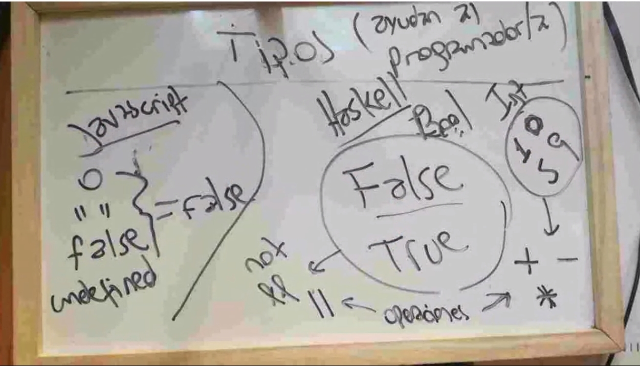 Tipos (ayudan al
programador/a)
Javascript
0
" "
false
undefined
= false
Haskell
Bool
False
True
not
&&
||
operaciones
Int
0
1 9
5
+ -
*